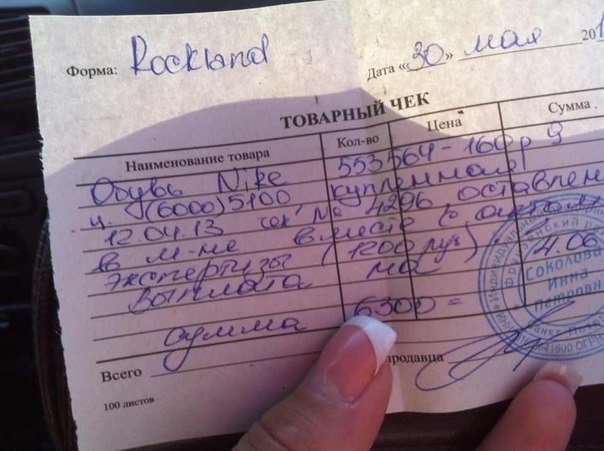 Форма: Rockland
Дата «30» мая 201
ТОВАРНЫЙ ЧЕК
Наименование товара Кол-во Цена Сумма
Обувь Nike 553564-160р 9
ц. (6000) 5100 купленная
12.04.13 чек № 4296, оставлен
в м-не вместе с актом
экспертизы (1200 руб) 4.06
выплата на
сумма 6300=
Всего
продавца
100 листов
Индивидуальный
Соколова
Инна
Петровна
Санкт-Пет